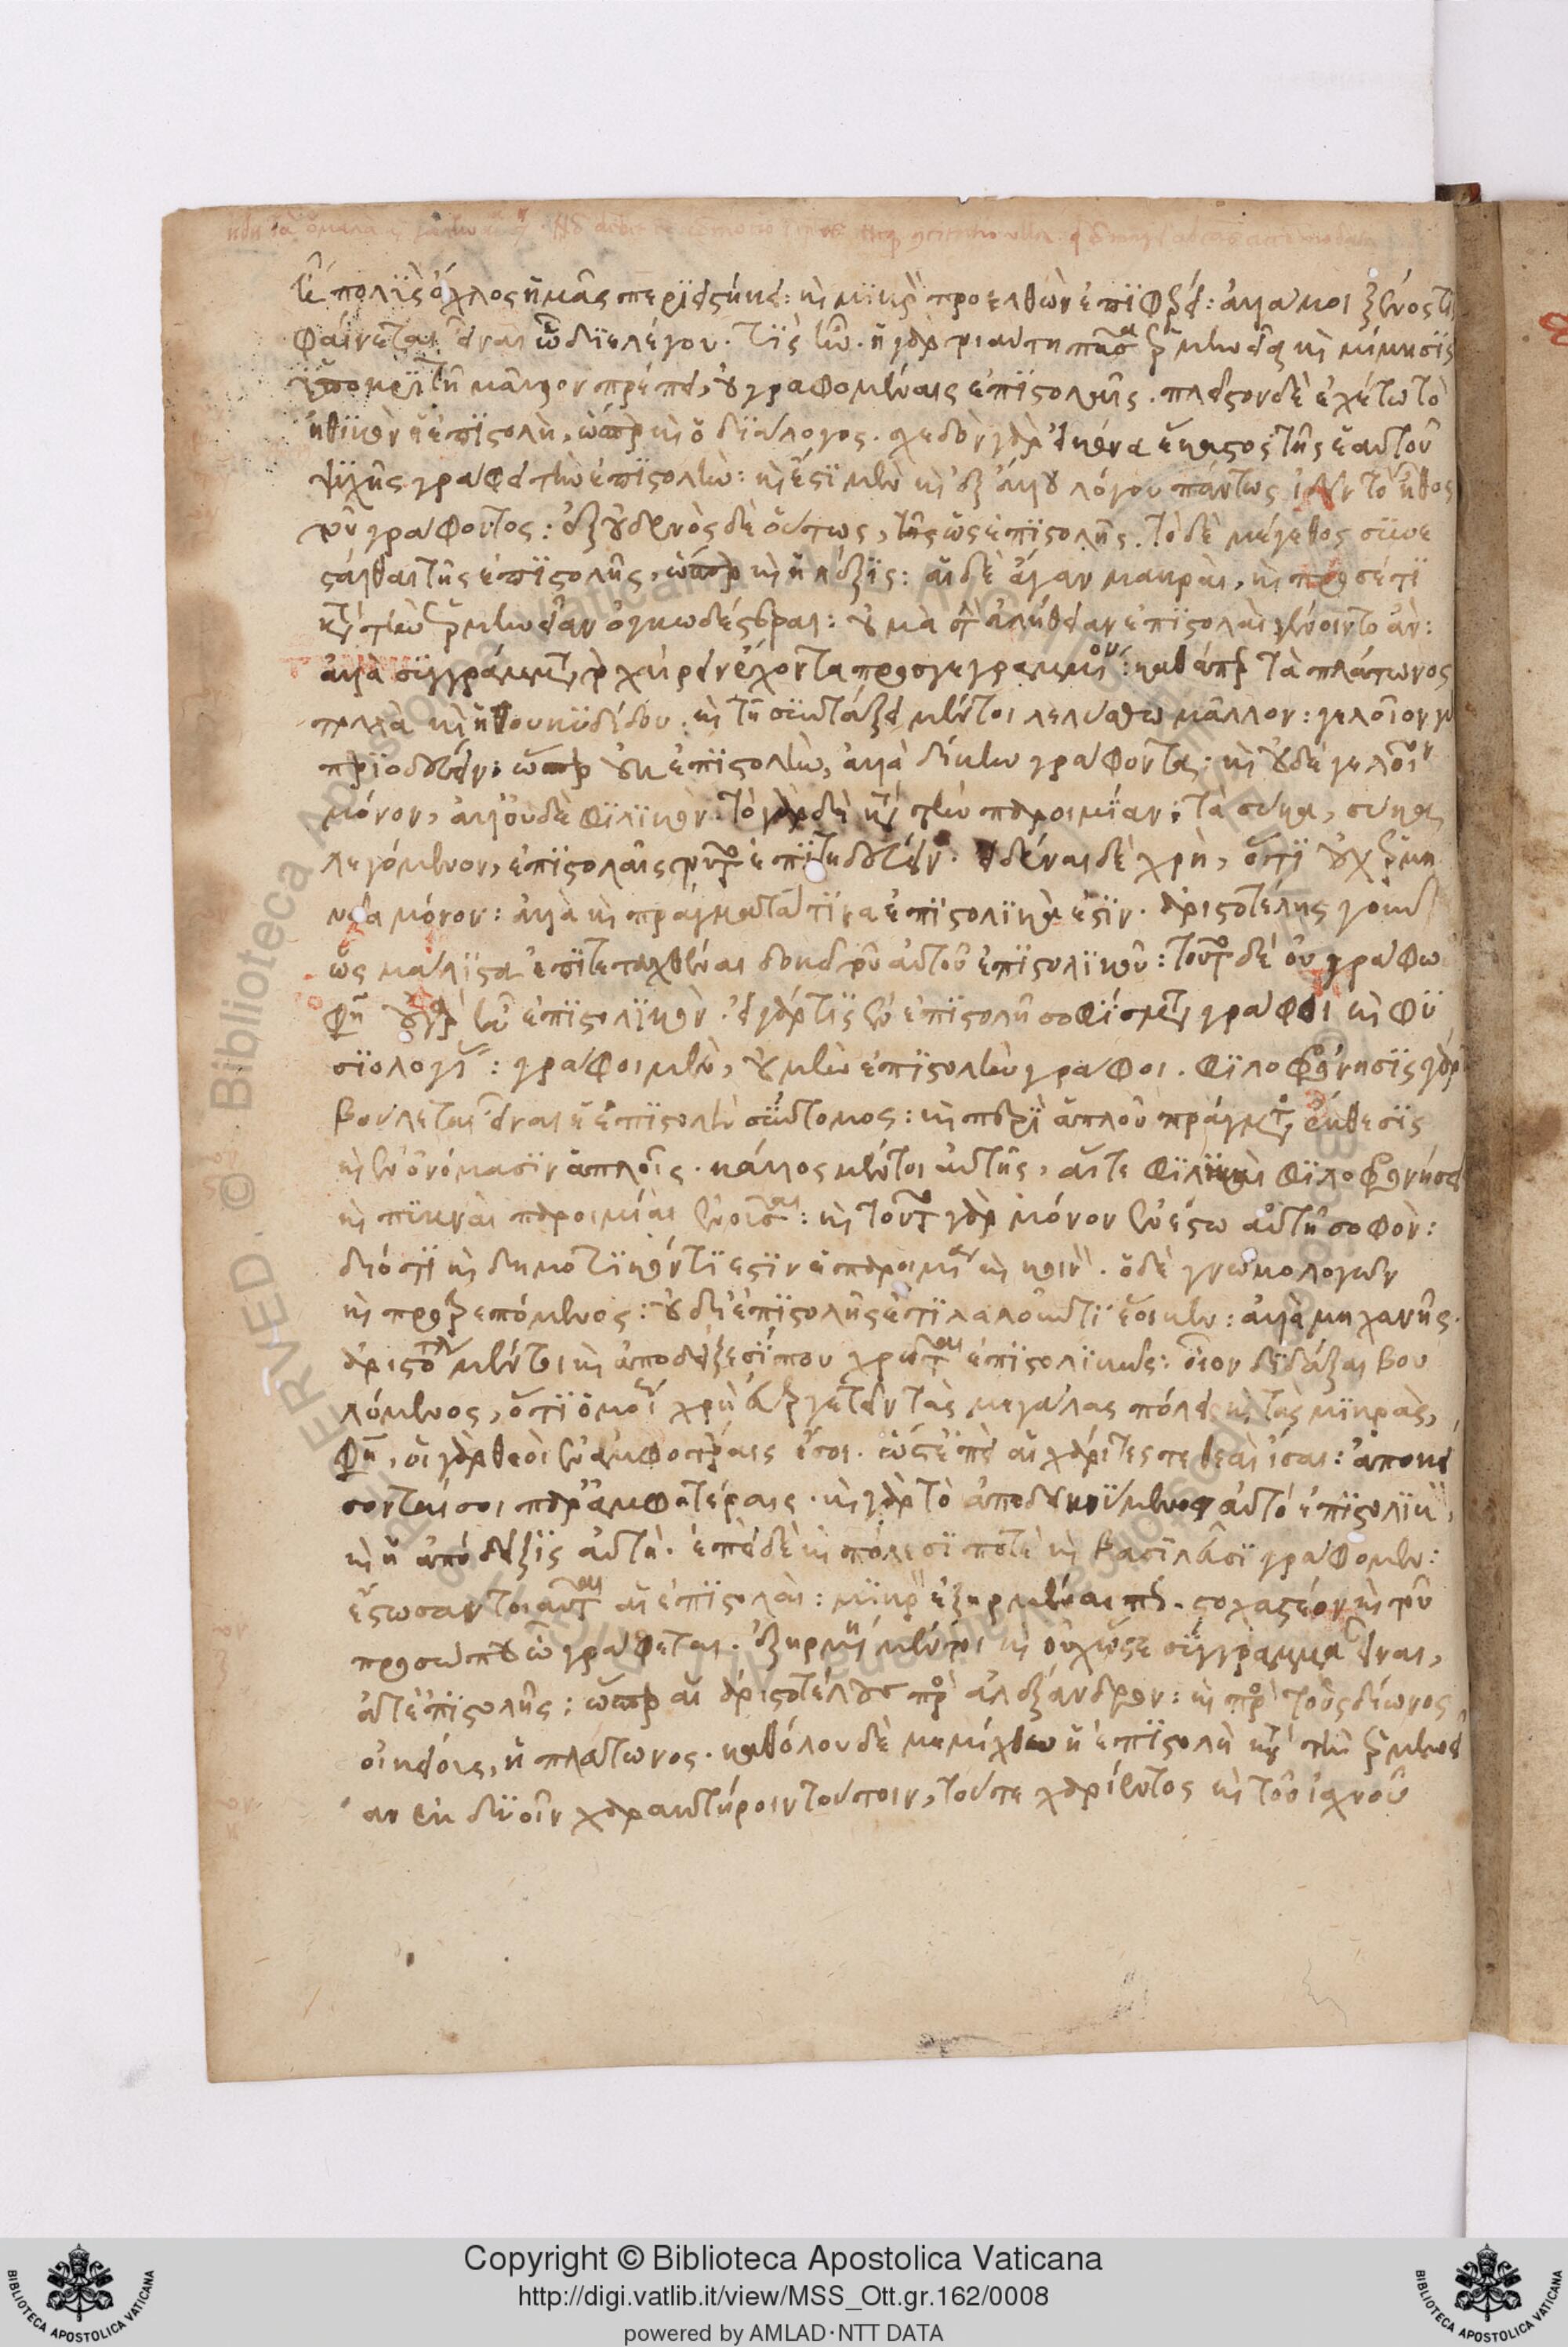 ἦ πολὺς ὄχλος ἡμᾶς περιειστήκει: καὶ μικρὸν προελθὼν ἐπιφέρει: ἀλλά μοι ξένος τις
φαίνεται εἶναι ᾧ διελέγου. τίς ἦν. ἡ γὰρ τοιαύτη πᾶσα ἑρμηνεία καὶ μίμησις
ὑποκριτῇ μᾶλλον πρέπει, οὐ γραφομέναις ἐπιστολαῖς. πλεῖστον δὲ ἐχέτω τὸ
ἠθικὸν ἡ ἐπιστολὴ, ὥσπερ καὶ ὁ διάλογος. σχεδὸν γὰρ εἰκόνα ἕκαστος τῆς ἑαυτοῦ
ψυχῆς γράφει τὴν ἐπιστολὴν: καὶ ἔστι μὲν καὶ ἐξ ἄλλου λόγου παντὸς ἰδεῖν τὸ ἦθος
τοῦ γράφοντος: ἐξ οὐδενὸς δὲ οὕτως, ὡς ἐπιστολῆς. τὸ δὲ μέγεθος συνε
στάλθαι τῆς ἐπιστολῆς, ὥσπερ καὶ ἡ λέξις: αἱ δὲ ἄγαν μακραὶ, καὶ προσέτι
κατὰ τὴν ἑρμηνείαν ὀγκωδέστεραι: οὐ μὰ τὴν ἀλήθειαν ἐπιστολαὶ γένοιντο ἂν:
ἀλλὰ συγγράμματα τὸ χαίρειν ἔχοντα προσγεγραμμένον: καθάπερ τὰ πλάτωνος
πολλὰ καὶ ἡ θουκυδίδου. καὶ τῇ συντάξει μέντοι λελύσθω μᾶλλον: γελοῖον γὰρ
περιοδεύειν: ὥσπερ οὐκ ἐπιστολὴν, ἀλλὰ δίκην γράφοντα: καὶ οὐδὲ γελοῖον
μόνον, ἀλλ' οὐδὲ φιλικὸν: τὸ γὰρ δὴ κατὰ τὴν παροιμίαν: τὰ σῦκα, σῦκα
λεγόμενον, ἐπιστολαῖς τοῦτο ἐπιτηδεύειν. εἰδέναι δὲ χρὴ, ὅτι οὐχ ἑρμη
νεία μόνον: ἀλλὰ καὶ πράγματά τινα ἐπιστολικά ἐστιν. ἀριστοτέλης γοῦν
ὃς μάλιστα ἐπιτετευχέναι δοκεῖ τοῦ αὐτοῦ ἐπιστολικοῦ: τοῦτο δὲ οὐ γράφω
φησὶ οὐ γὰρ ἦν ἐπιστολικὸν. εἰ γάρ τις ἐν ἐπιστολῇ σοφίσματα γράφοι καὶ φυ
σιολογίας: γράφοι μὲν, οὐ μὴν ἐπιστολὴν γράφοι. φιλοφρόνησις γάρ
βούλεται εἶναι ἡ ἐπιστολὴ σύντομος: καὶ περὶ ἁπλοῦ πράγματος ἔκθεσις
καὶ ἐν ὀνόμασιν ἁπλοῖς. κάλλος μέντοι αὐτῆς, αἵ τε φιλικαὶ φιλοφρονήσεις
καὶ πυκναὶ παροιμίαι ἐνοῦσαι: καὶ τοῦτο γὰρ μόνον ἐνέστω αὐτῇ σοφὸν:
διότι καὶ δημοτικόν τι ἐστὶν ἡ παροιμία καὶ κοινὸν. ὁ δὲ γνωμολογῶν
καὶ προτρεπόμενος: οὐ δι' ἐπιστολῆς ἔτι λαλοῦντι ἔοικεν: ἀλλὰ μηχανῆς.
ἀριστοτέλης μέντοι καὶ ἀποδείξεσί που χρῆται ἐπιστολικῶς: οἷον διδάξαι βου
λόμενος, ὅτι ὁμοίως χρὴ εὐεργετεῖν τὰς μεγάλας πόλεις καὶ τὰς μικρὰς,
φησὶ, οἱ γὰρ θεοὶ ἐν ἀμφοτέραις ἴσοι. ὥστ' ἐπεὶ αἱ χάριτες θεαὶ ἴσαι: ἀποκεί
σονταί σοι παρ' ἀμφοτέραις. καὶ γὰρ τὸ ἀποδεικνύμενον αὐτό ἐπιστολικὸν,
καὶ ἡ ἀπόδειξις αὐτὴ. ἐπεὶ δὲ καὶ πόλεσί ποτε καὶ βασιλεῦσι γράφομεν:
ἔστωσαν τοιαῦται αἱ ἐπιστολαὶ: μικρὸν ἐξηρμέναι πως. στοχαστέον καὶ τοῦ
προσώπου ᾧ γράφεται. ἐξηρμένη μέντοι καὶ οὐχ ὥστε σύγγραμμα εἶναι,
ἀντ' ἐπιστολῆς: ὥσπερ αἱ ἀριστοτέλους πρὸς ἀλέξανδρον: καὶ πρὸς τοὺς δίωνος
οἰκείους, ἡ πλάτωνος. καθόλου δὲ μεμίχθω ἡ ἐπιστολὴ κατὰ τὴν ἑρμηνεί
αν ἐκ δυοῖν χαρακτήροιν τούτοιν, τοῦ τε χαρίεντος καὶ τοῦ ἰσχνοῦ
Copyright © Biblioteca Apostolica Vaticana
http://digi.vatlib.it/view/MSS_Ott.gr.162/0008
powered by AMLAD·NTT DATA
BIBLIOTECA APOSTOLICA VATICANA
BIBLIOTECA APOSTOLICA VATICANA